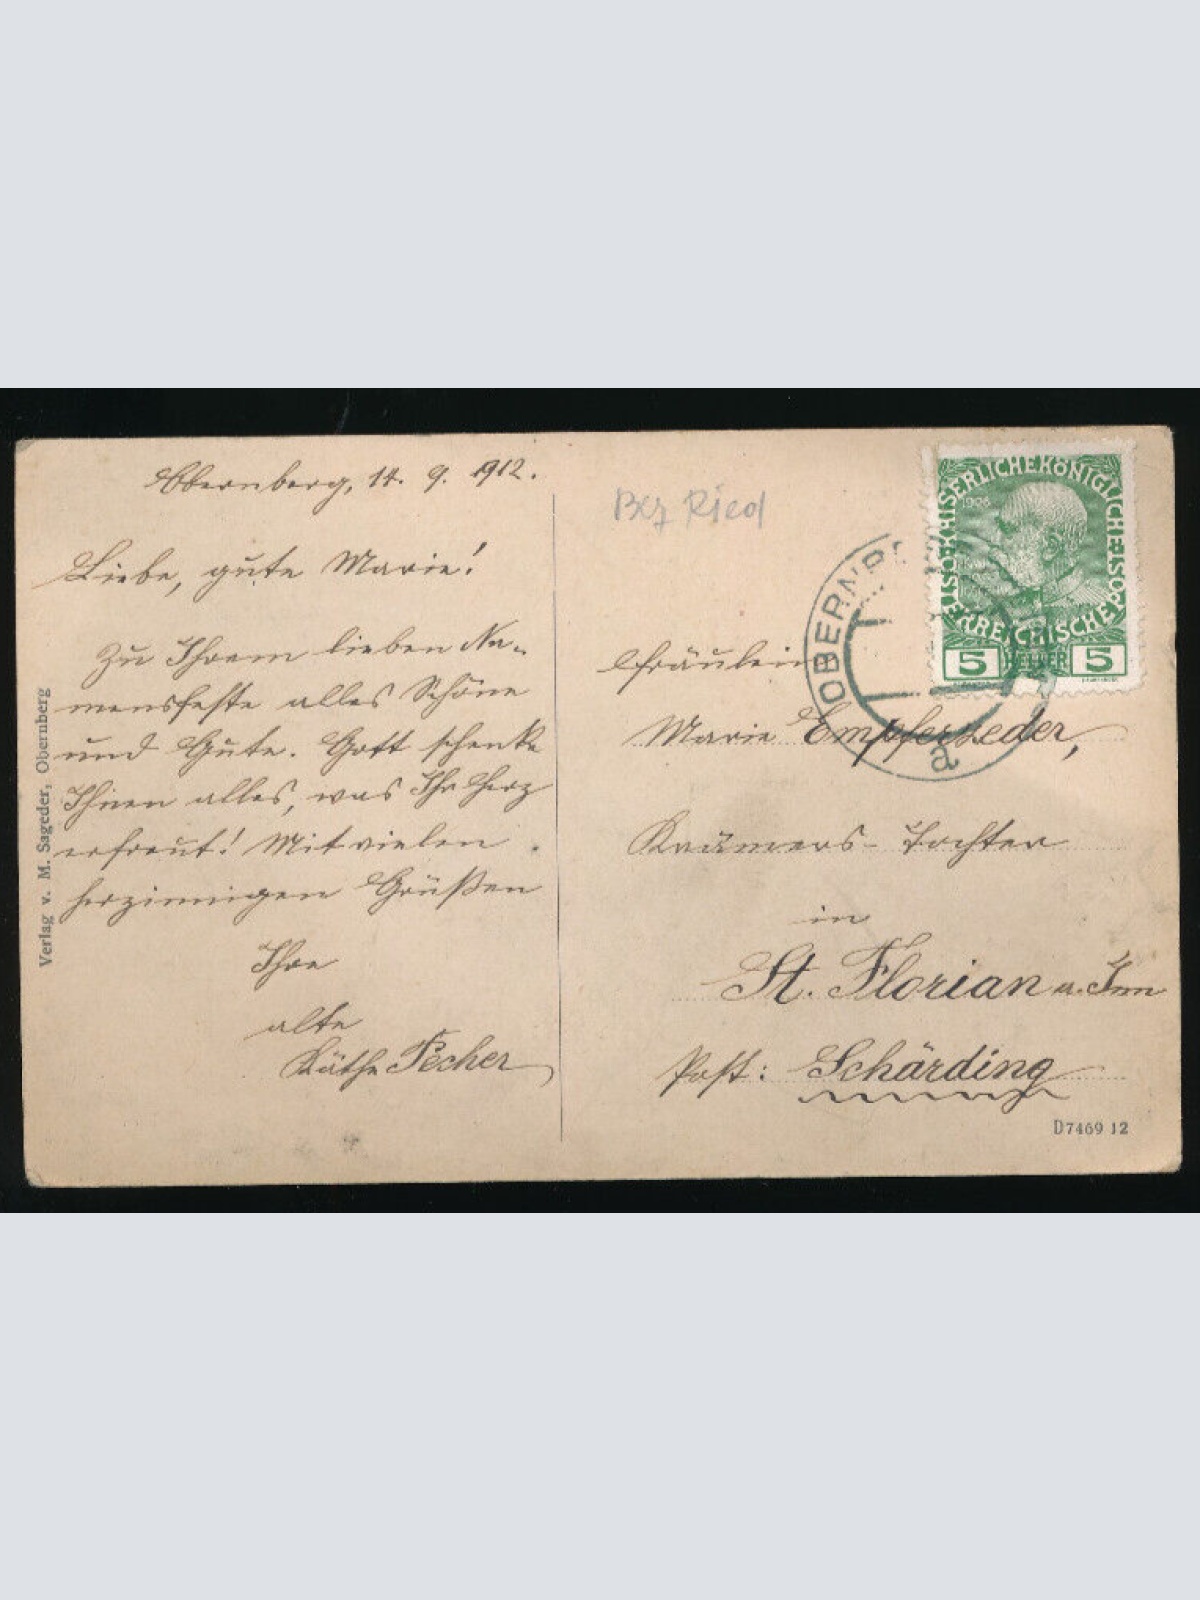 Obernberg, 14. 9. 1912.
Liebe, gute Marie!
Zu Ihrem lieben Na-
mensfeste alles Schöne
und Gute. Gott schenke
Ihnen alles, was Ihr Herz
erfreut! Mit vielen
herzinnigen Grüßen
Ihre
alte
Käthe Pecher
Verlag v. M. Sageder, Obernberg
Bez Ried
KAISERLICHE KÖNIGLICHE ÖSTERREICHISCHE POST
1908
5 HELLER 5
OBERNB
a
Fräulein
Marie Empferseder,
Krämers-Tochter
in
St. Florian a. Inn
Post: Schärding
D7469 12